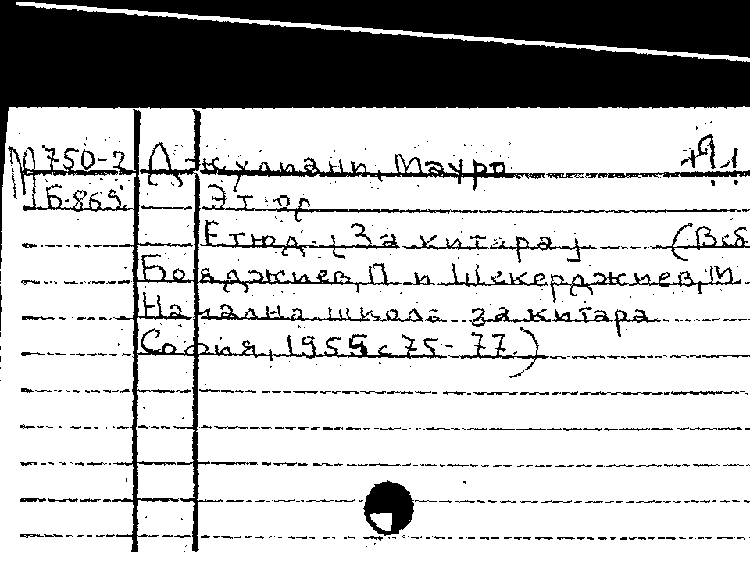 М 750-2 Джулиани, Мауро
Б-865
Етюд. [За китара] (Всб
Бояджиев, П и Шекерджиев, М.
Начална школа за китара
София, 1955 с 75-77.)